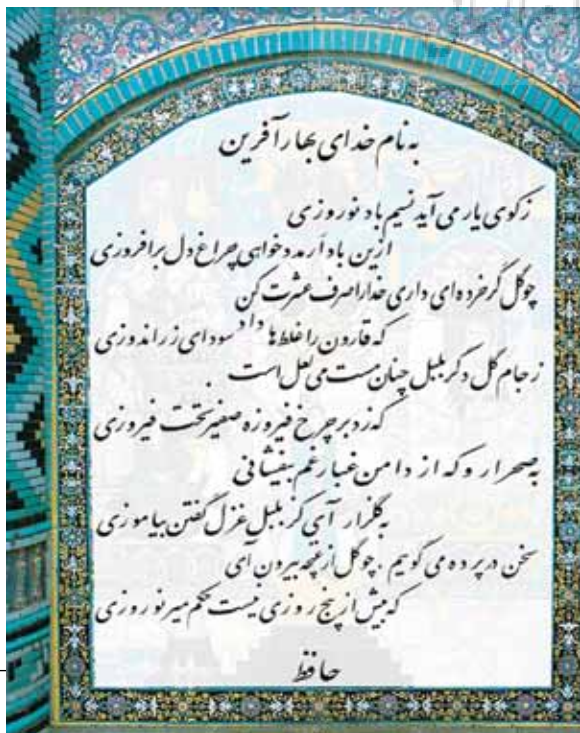 به نام خدای بهارآفرین
زکوی یار می آید نسیم باد نوروزی
ازین باد ار مدد خواهی چراغ دل برافروزی
چوگل گر خرده ای داری خدارا صرف عشرت کن
که قارون را غلط ها داد سودای زراندوزی
ز جام گل دگر بلبل چنان مست می لعل است
که زد بر چرخ فیروزه صفیر تخت فیروزی
به صحرا رو که از دامن غبار غم بیفشانی
به گلزار آی کز بلبل غزل گفتن بیاموزی
سخن در پرده می گویم . چو گل از غنچه بیرون آی
که بیش از پنج روزی نیست حکم میر نوروزی
حافظ